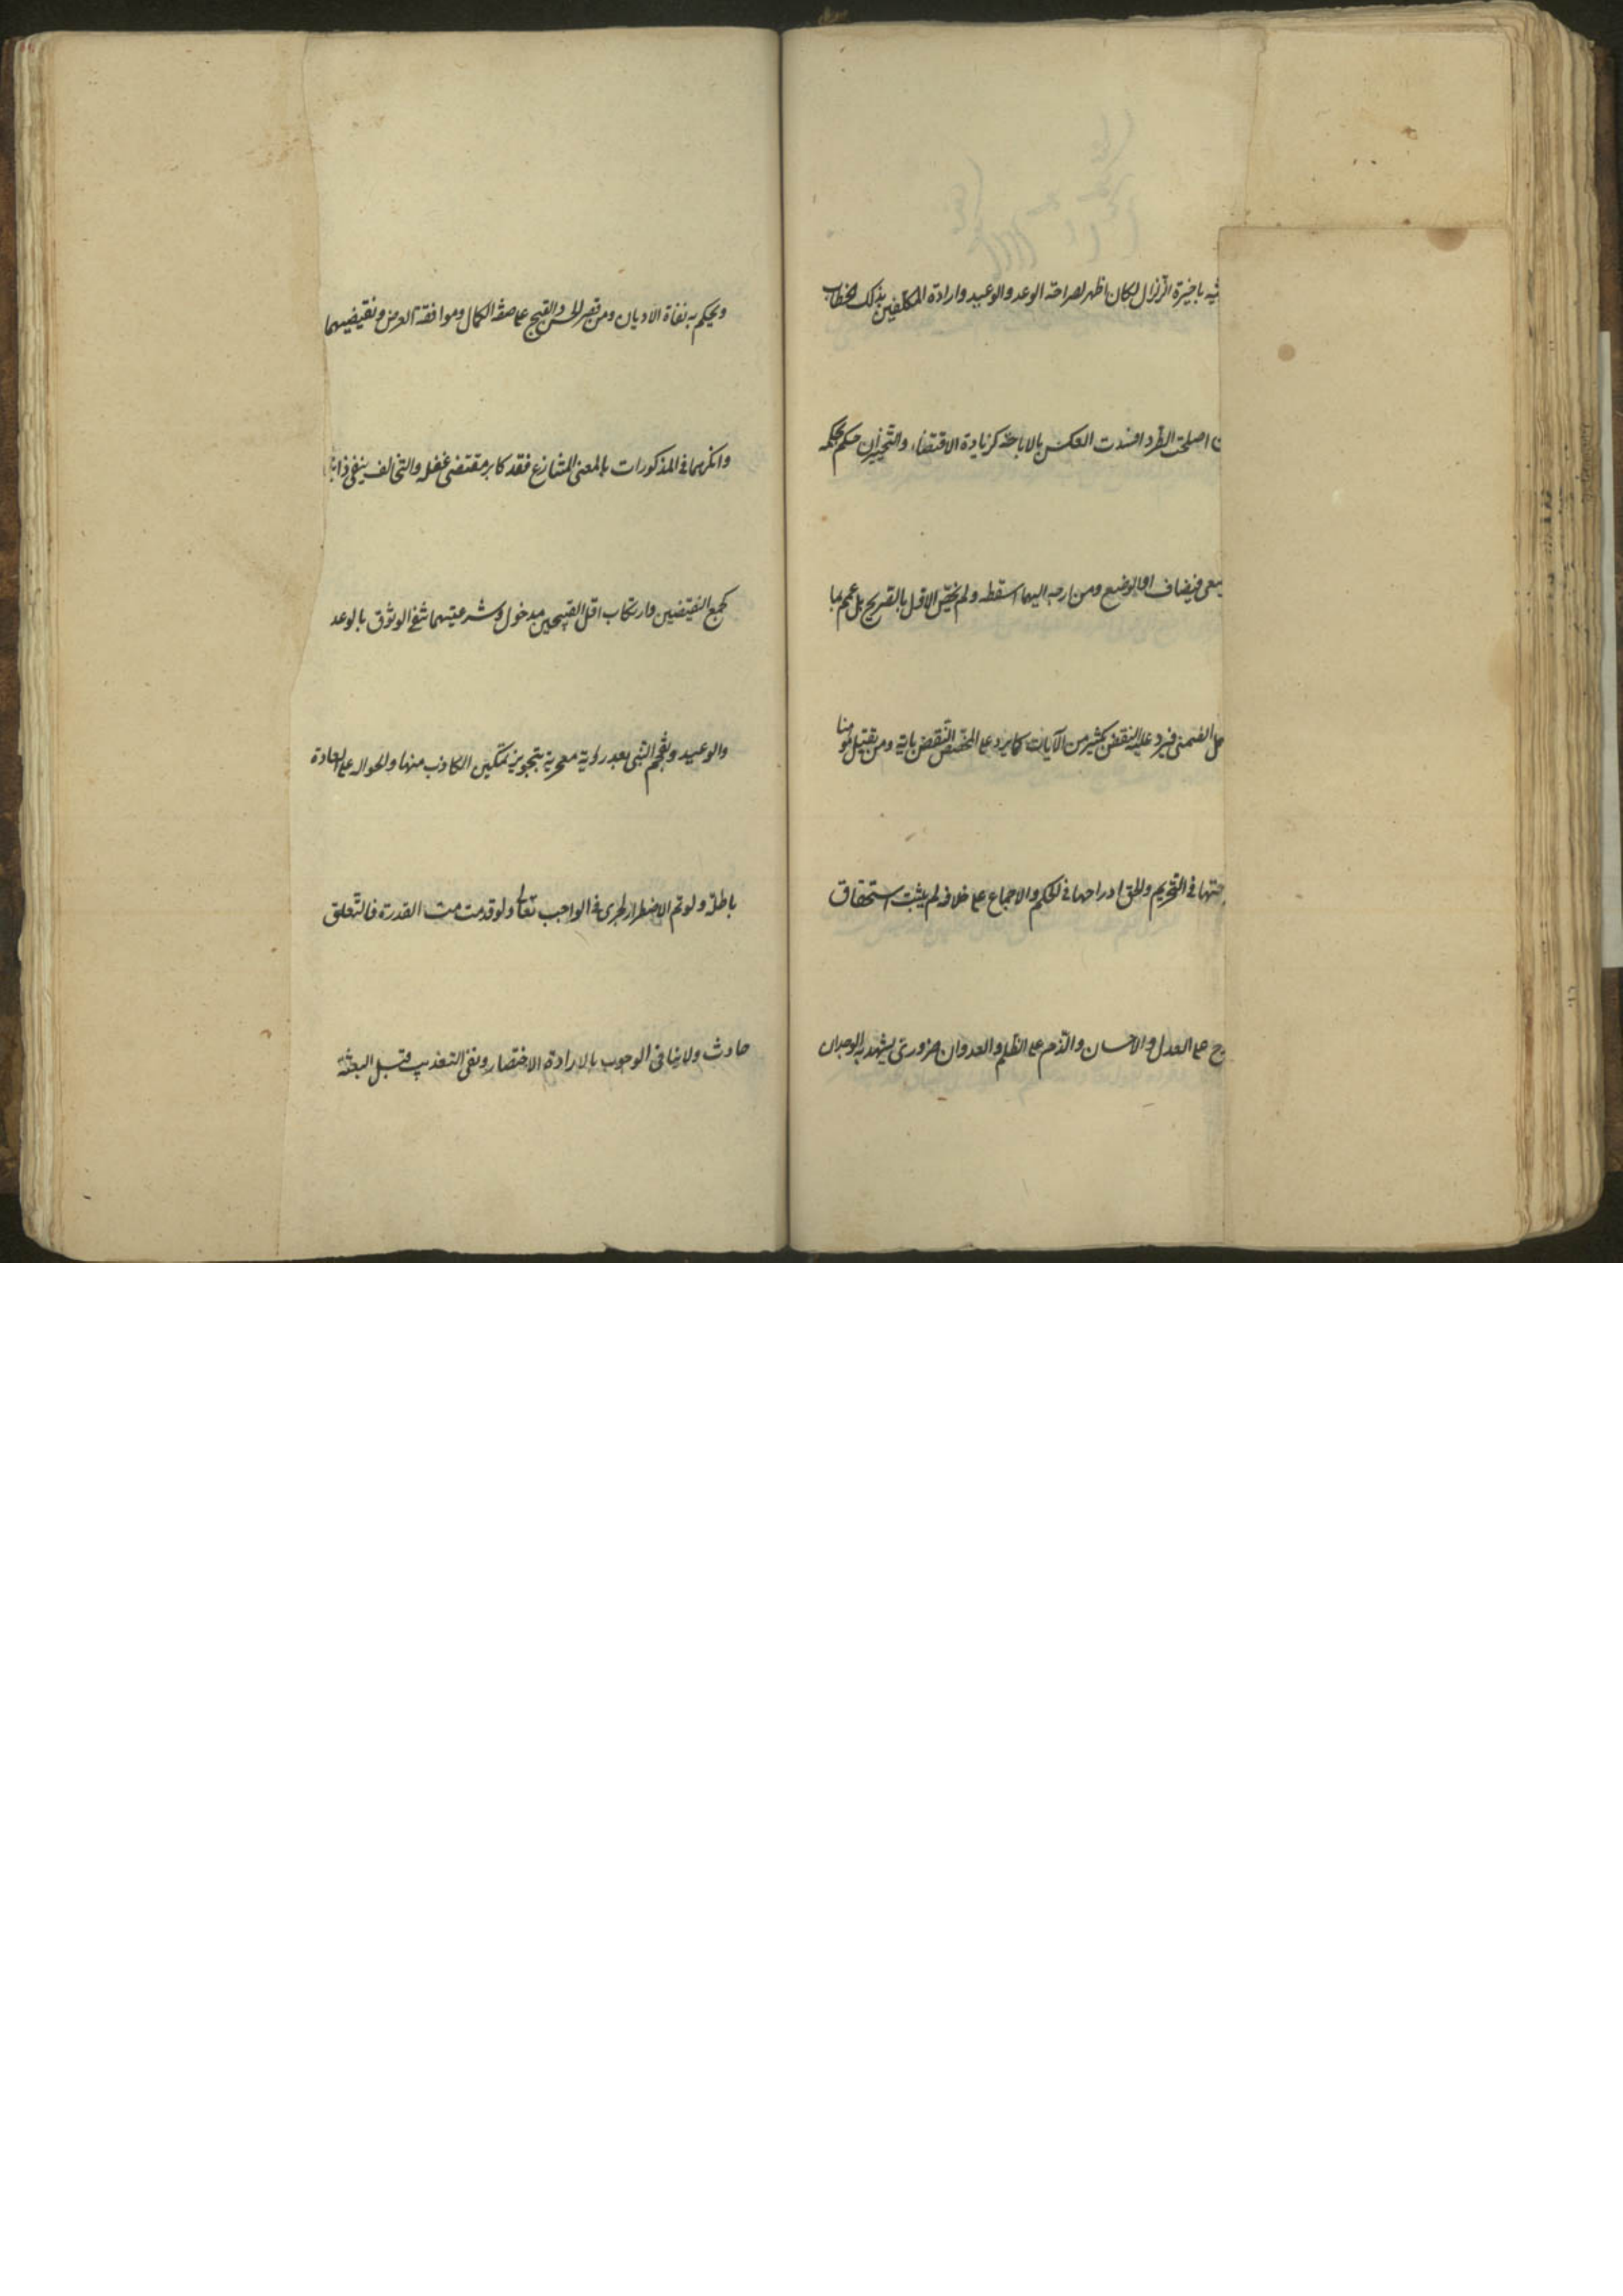 باخيرة الزلزال لكان اظهر لصراحة الوعد والوعيد وارادة المكلفين بذلك الخطاب
اصلحت الطرد افسدت العكس بالاباحة كزيادة الاقتضاء والتخيير ان حكم بحكمه
فيضاف او الوضع ومن ارجعه اليهما اسقطه ولم يخص الاول بالصريح بل عمم بما
الضمني فيرد عليه النقض بكثير من الآيات كما يرد على المخصص النقض باية ومن يقتل مؤمنا
في التحريم والحق ادراجها في الحكم والاجماع على خلافه لم يثبت استحقاق
على العدل والاحسان والذم على الظلم والعدوان ضروري يشهد به الوجدان
ويحكم به نفاة الاديان ومن قصر الحسن والقبح على صفة الكمال وموافقة الغرض ونقيضيهما
وانكرهما في المذكورات بالمعنى المتنازع فقد كابر مقتضى عقله والتخالف ينفي ذاتية
كجمع النقيضين وارتكاب اقل القبيحين مدخول وشرعيتهما تنفي الوثوق بالوعد
والوعيد وتفحم النبي بعد رؤية معجزته بتجويز تمكين الكاذب منها والحوالة على العادة
باطلة ولو تم الاضطرار لجرى في الواجب تعالى ولو قدمت القدرة فالتعلق
حادث ولا ينافي الوجوب بالارادة الاختيار ونفي التعذيب قبل البعثة